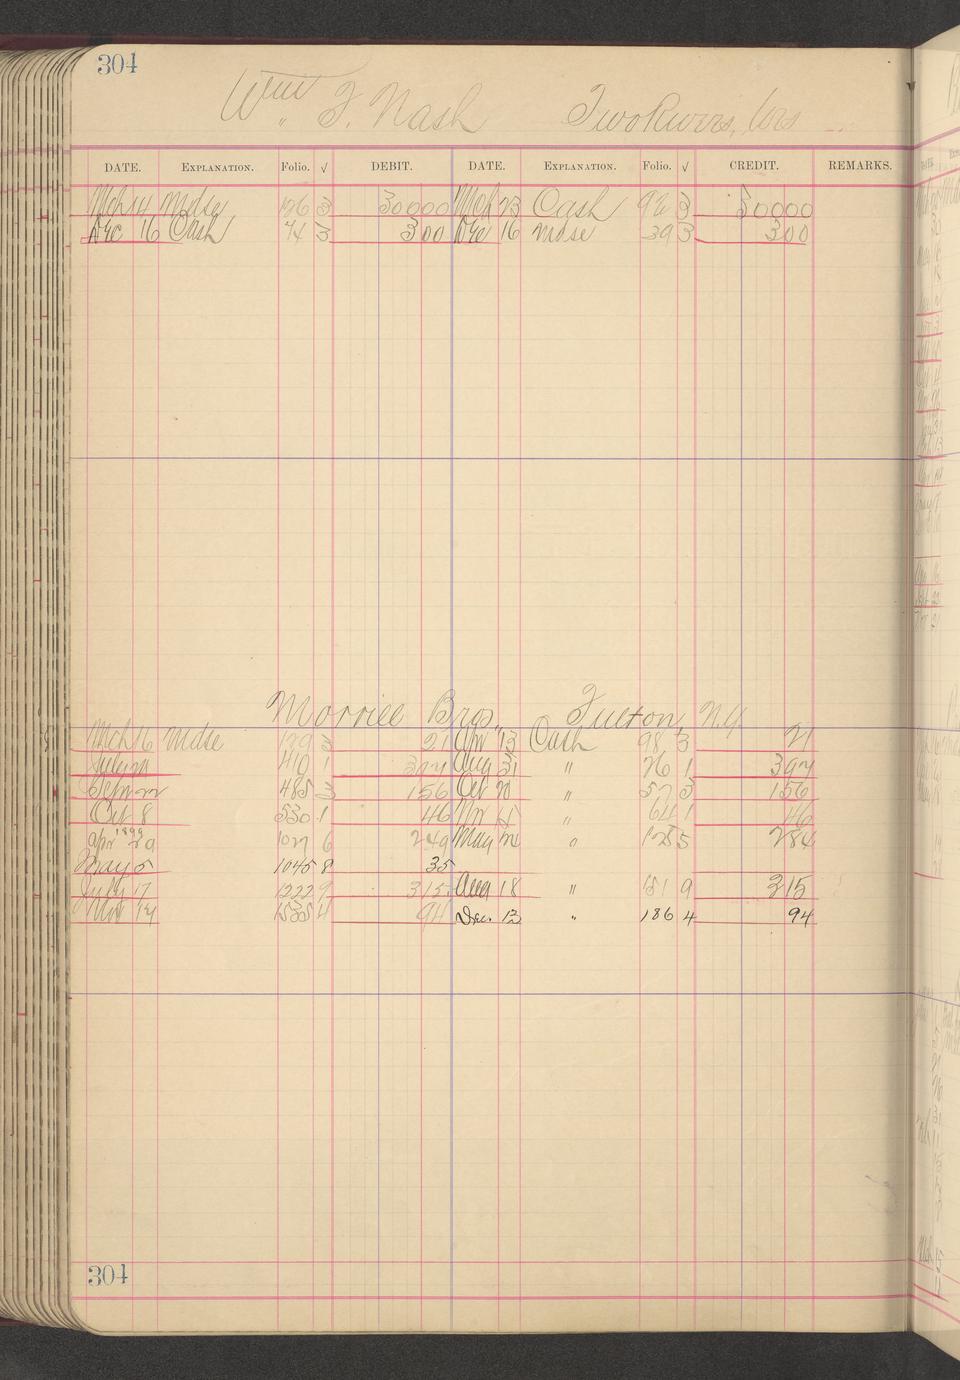 304
Wm F. Nash Two Rivers, Wis
DATE. EXPLANATION. Folio. √ DEBIT. DATE. EXPLANATION. Folio. √ CREDIT. REMARKS.
Mch 14 Mdse 126 3 30000 Mch 23 Cash 92 3 30000
Dec 16 Cash 74 3 300 Dec 16 Mdse 39 3 300
Morrill Bros, Fulton, N.Y.
Mch 16 Mdse 129 3 21 Apr 13 Cash 98 3 21
July 410 1 397 Aug 31 " 26 1 397
Sep 22 485 3 156 Oct 20 " 57 5 156
Oct 8 530 1 46 Nov 5 " 64 1 46
1899
Apr 29 1027 6 249 May 24 " 125 5 284
May 5 1045 8 35
July 17 1222 9 315 Aug 18 " 151 9 315
Nov 14 1535 4 94 Dec. 12 " 186 4 94
304